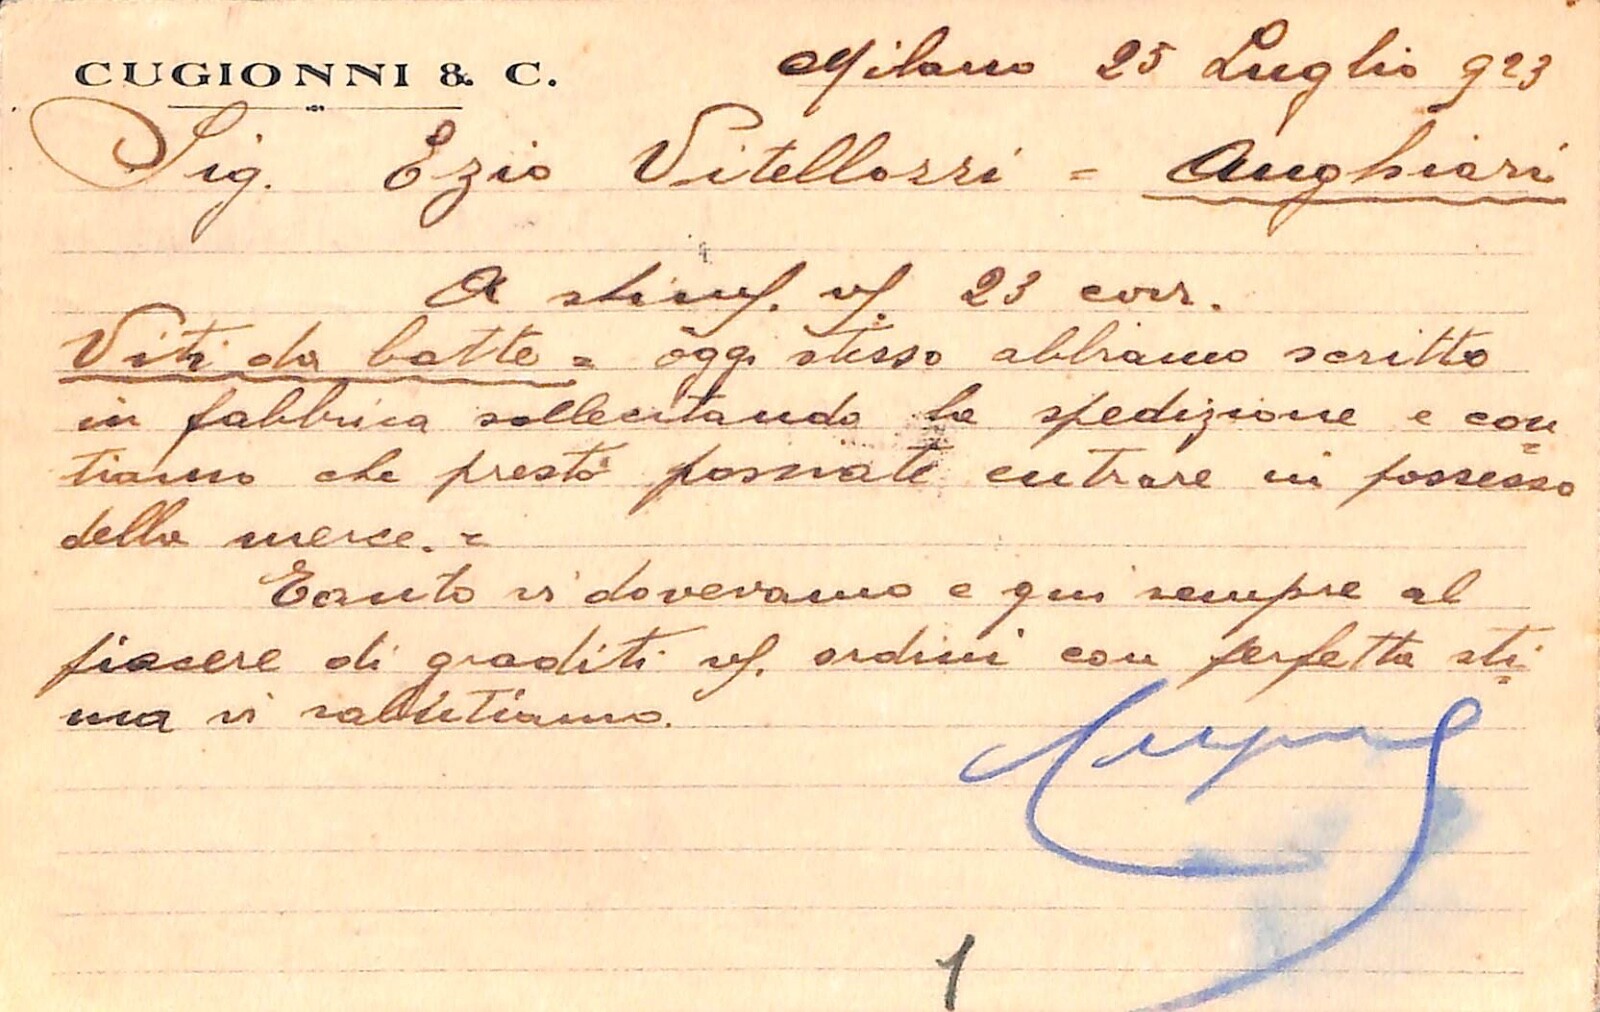 CUGIONNI & C.
Milano 25 Luglio 923
Sig. Ezio Vitellozzi = Anghiari
A stim/. v/. 23 corr.
Viti da botte = oggi stesso abbiamo scritto
in fabbrica sollecitando la spedizione e con=
tiamo che presto possiate entrare in possesso
della merce. =
Tanto vi dovevamo e qui sempre al
piacere di graditi v/. ordini con perfetta sti=
ma vi salutiamo.
1